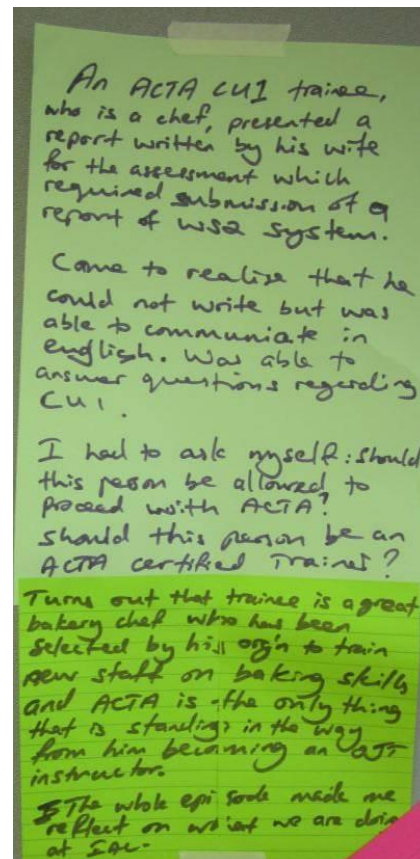 An ACTA CU1 trainee,
who is a chef, presented a
report written by his wife
for the assessment which
required submission of a
report of WSQ system.
Come to realise that he
could not write but was
able to communiate in
english. Was able to
answer questions regarding
CU1.
I had to ask myself: should
this person be allowed to
proceed with ACTA?
should this person be an
ACTA certified Trainer?
Turns out that trainee is a great
bakery chef who has been
selected by his org'n to train
new staff on baking skills
and ACTA is the only thing
that is standing in the way
from him becoming an OJT
instructor.
The whole episode made me
reflect on what we are doing
at IAL.